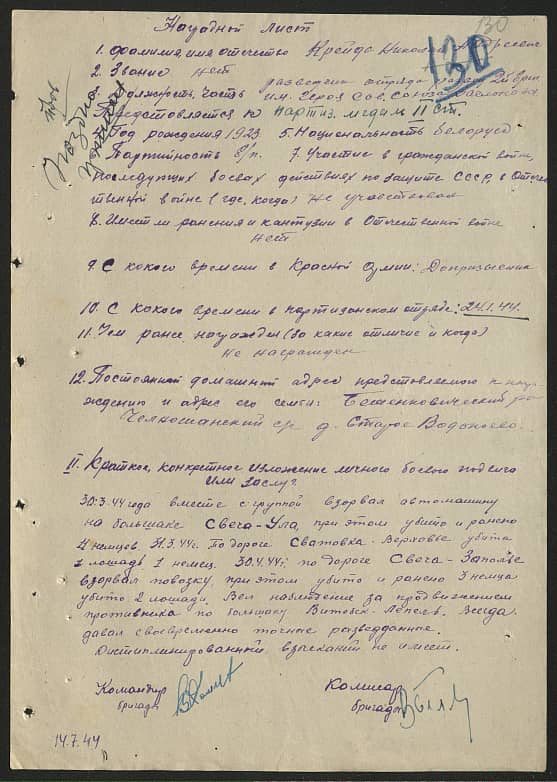 130
Наградной лист
130
1. Фамилия имя отчество Крейдо Николай
2. Звание нет
3. Должность, часть разведчик отряда
им. Героя Сов. Союза
Представляется к партиз. медали II ст.
4. Год рождения 1923 5. Национальность белорус
6. Партийность б/п. 7. Участие в гражданской войне,
последующих боевых действиях по защите СССР, в Отече-
ственной войне (где, когда) не участвовал
8. Имет ли ранения и контузии в Отечественной войне
нет
9. С какого времени в Красной Армии: Допризывник
10. С какого времени в партизанском отряде: 24.1.44.
11. Чем ранее награжден (за какие отличие и когда)
не награжден
12. Постоянной домашной адрес представляемого к наг-
раждению и адрес его семьи: Бешенковический р-н
д. Старое
II. Краткое, конкретное изложение личного боевого подвига
или заслуг
30.3.44 года вместе с группой взорвал автомашину
на большаке Свеча-Ула, при этом убито и ранено
4 немцев. 31.3.44г. По дороге - Верховье убита
1 лошадь, 1 немец. 30.4.44г. по дороге Свеча-Заполье
взорвал повозку, при этом убито и ранено 3 немца
убито 2 лошади. Вел наблюдение за продвижением
противника по большаку Витебск-Лепель. Всегда
давал своевременно точные разведданные.
Дисциплинированный, взысканий не имеет.
Командир Комисар
бригады бригады
14.7.44